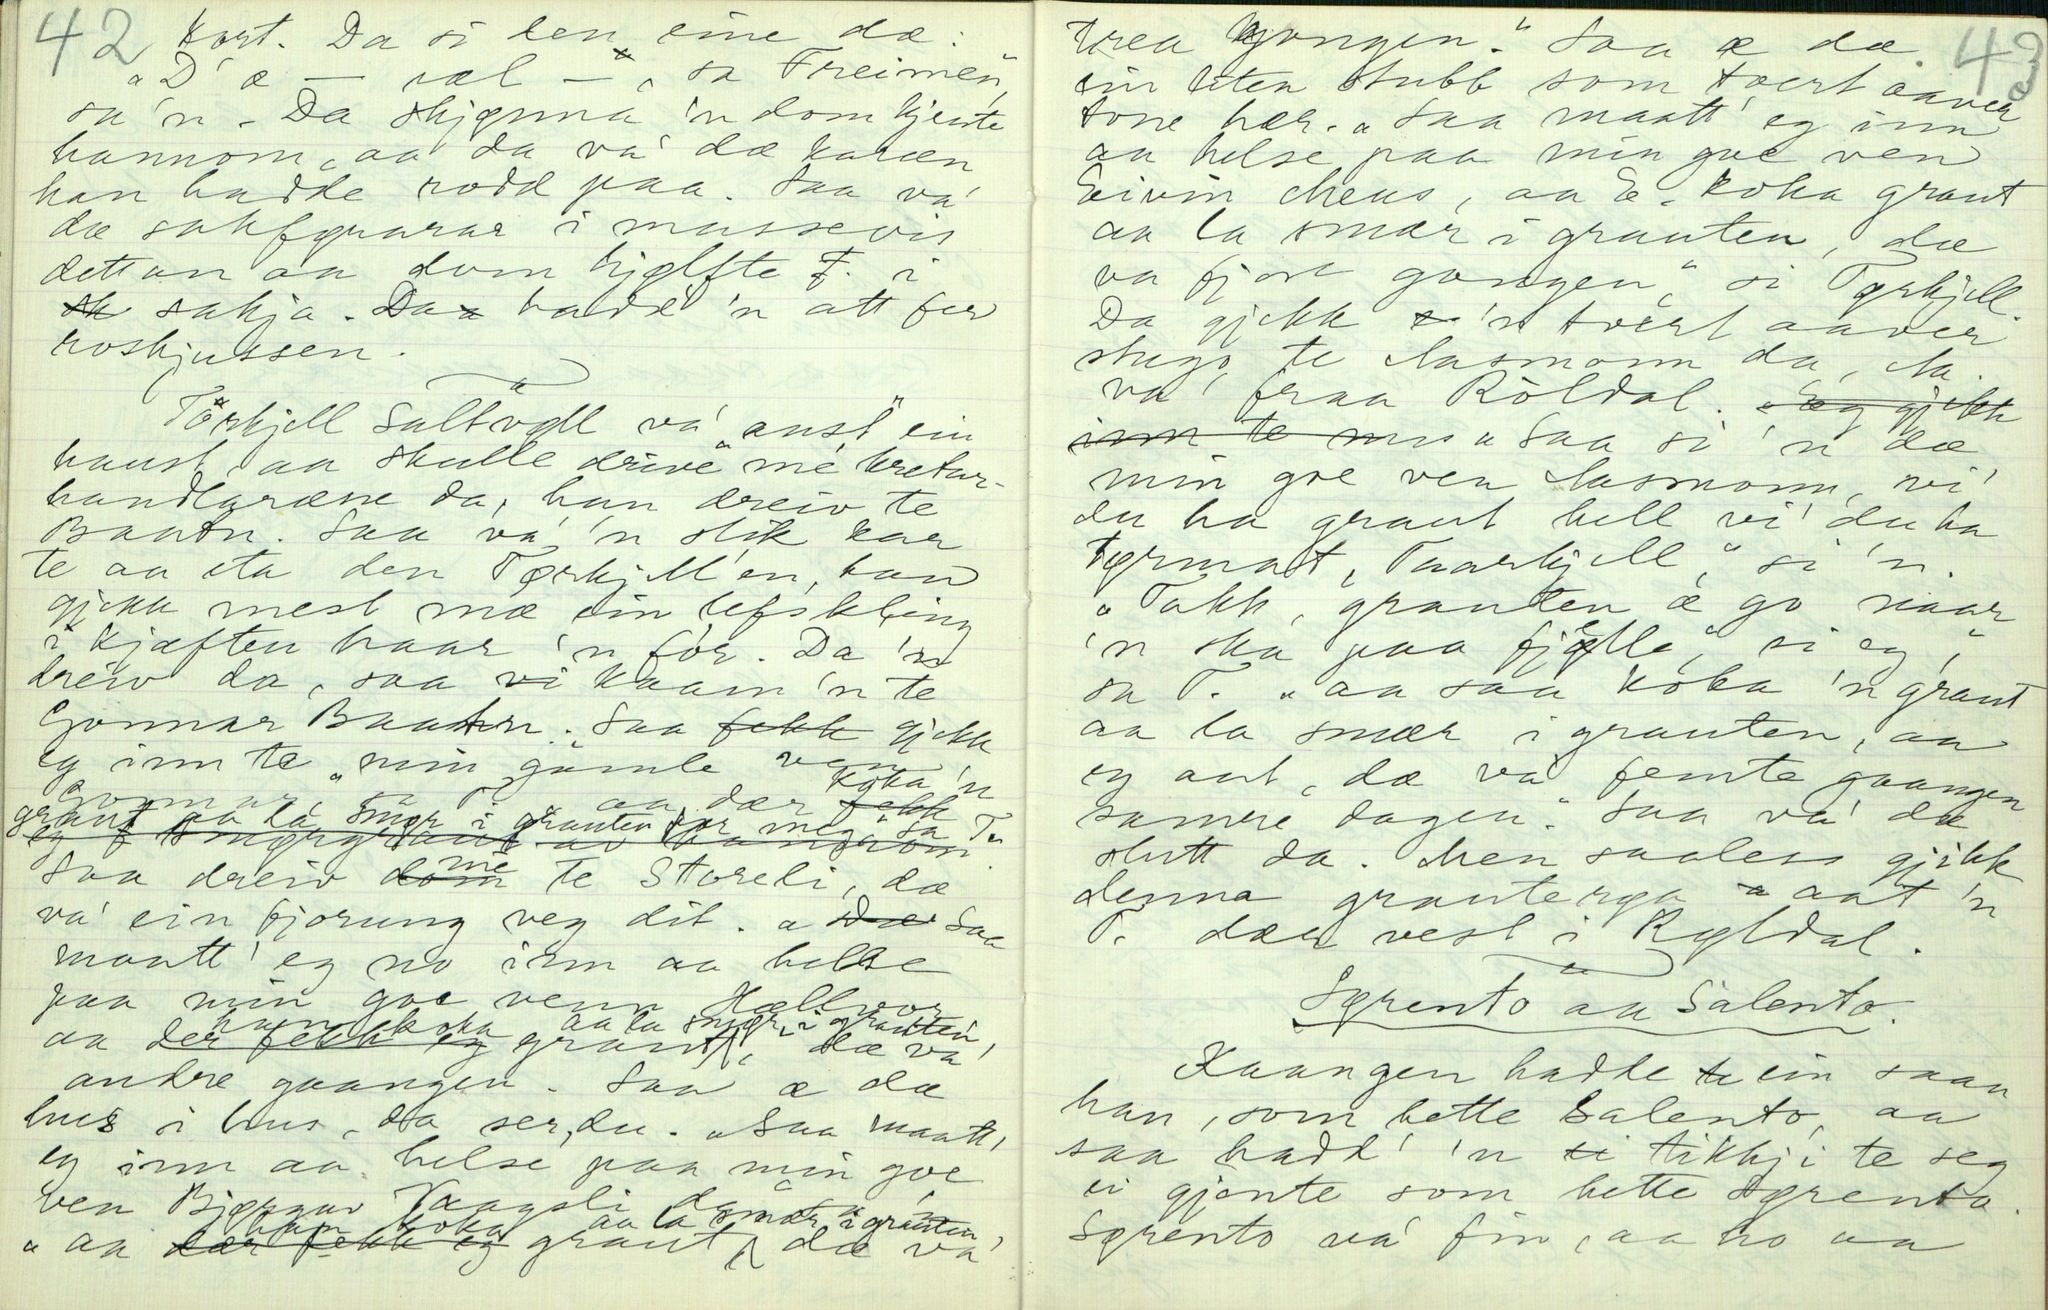 42
kort. Da si den eine da:
"D' æ — væl —", sa Freimen,
sa 'n. Da skjønna 'n dom kjente
hannom, aa da va' dæ karæn
han hadde rodd paa. Saa va'
dæ sakførarar i massevis
dettan aa dom hjølfte F. i
sakja. Da hadd 'n att for
roskjussen.
Tørkjell Saltvoll va' "aust" ein
haust, aa skulle "drive" me kretur-
handlaræne da, han dreiv te
Baatn. Saa va' 'n slik kar
te aa eta den Tørkjell'en, han
gjekk mest mæ ein lefskling
i kjæften haar 'n fór. Da 'n
dreiv da, saa kaam 'n te
Gonnar Baatn. "Saa fekk gjekk
eg inn te min gamle ven
Gonnar, sa T. "aa dær fekk koka 'n
graut aa la smør i grauten for meg" sa T.
Saa dreiv dom me te Storeli, dæ
va' ein fjorung veg dit. "Saa
maatt' eg no inn aa helse
paa min goe venn Hællvor
aa der fekk eg han koka graut, aa la smør i grauten, dæ va'
andre gaangen. Saa æ dæ
hus i hus, da ser du. "Saa maatt'
eg inn aa helse paa min goe
ven Bjørguv Vaagsli da" sa 'n
"aa dær fekk eg han koka graut aa la smær i grauten, dæ va'
43
trea gongen." Saa æ dæ
ein liten stubb som tvert aaver
tone hær. "Saa maatt' eg inn
aa helse paa min goe ven
Eivin Mens, aa E. koka graut
aa la smær i grauten, dæ
va fjore gongen," si Tørkjell.
Da gjekk 'n tvert aaver
stugo te Aasmonn da, Aa.
va' fraa Röldal. Eeg gjekk
inn te "Saa si 'n dæ
min goe ven Aasmonn, vi'
du ha graut hell vi' du ha
tørmat, Taarkjell," si 'n.
"Takk, grauten æ go naar
'n ska paa fjølle," si eg,"
sa T. "aa saa koka 'n graut
aa la smær i grauten, aa
eg aat, dæ va' femte gaangen
samre dagen." Saa va' dæ
slutt da. Men saaless gjikk
denna grauterga aat 'n
T. dær vest i Røldal.
Sørento aa Salento.
Kaangen hadde ein saan
han, som hette Salento, aa
saa hadd' 'n tikkji te seg
ei gjente som hette Sørento.
Sørento va' fin, aa ho aa